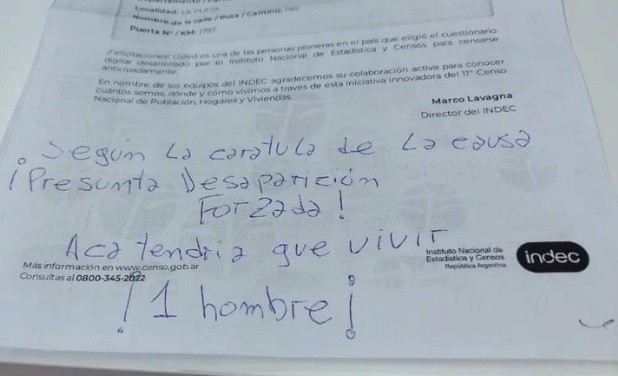 Localidad: LA PLATA
Nombre de la calle / Ruta / Camino: 140
Puerta Nº / KM: 1797
¡Felicitaciones! Usted es una de las personas pioneras en el país que eligió el cuestionario
digital desarrollado por el Instituto Nacional de Estadística y Censos para censarse
anticipadamente.
En nombre de los equipos del INDEC agradecemos su colaboración activa para conocer
cuántos somos, dónde y cómo vivimos a través de esta iniciativa innovadora del 11° Censo
Nacional de Población, Hogares y Viviendas.
Marco Lavagna
Director del INDEC
Según La caratula de La causa
¡Presunta Desaparición
Forzada!
Aca tendria que vivir
Instituto Nacional de
Estadística y Censos
República Argentina
indec
Más información en www.censo.gob.ar
Consultas al 0800-345-2022
¡1 hombre!